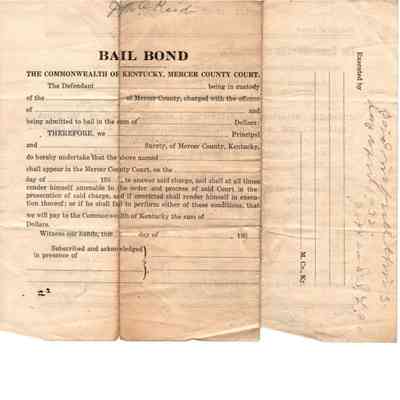 Reed
BAIL BOND
THE COMMONWEALTH OF KENTUCKY, MERCER COUNTY COURT.
The Defendant being in custody
of the of Mercer County, charged with the offense
of and
being admitted to bail in the sum of Dollars:
THEREFORE, we Principal
and Surety, of Mercer County, Kentucky,
do hereby undertake that the above named
shall appear in the Mercer County Court, on the
day of 193 , to answer said charge, and shall at all times
render himself amenable to the order and process of said Court in the
prosecution of said charge, and if convicted shall render himself in execu-
tion thereof; or if he shall fail to perform either of these conditions, that
we will pay to the Commonwealth of Kentucky the sum of
Dollars.
Witness our hands, this day of 193
Subscribed and acknowledged
in presence of
Executed by
M. Co., Ky.